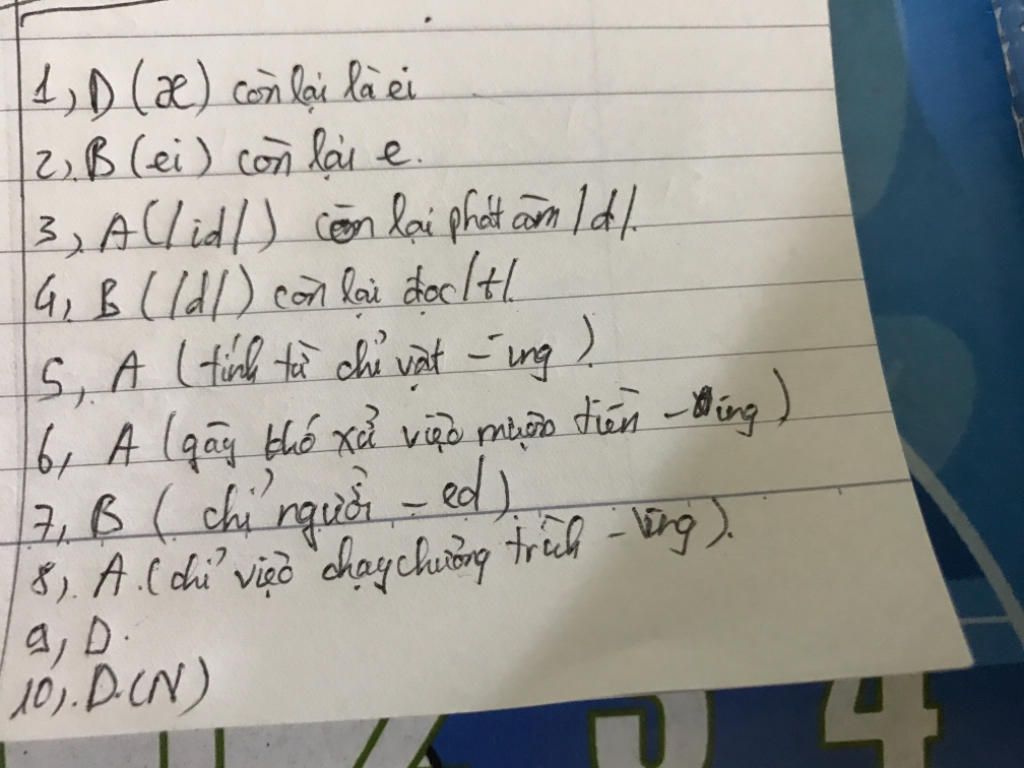 1, D (æ) còn lại là ei
2, B (ei) còn lại e.
3, A (/id/) còn lại phát âm /d/.
4, B (/d/) còn lại đọc /t/.
5, A (tính từ chỉ vật - ing)
6, A (gây khó xử việc mượn tiền - ing)
7, B (chỉ người - ed)
8, A. (chỉ việc chạy chương trình - ing).
9, D.
10, D. (N)
2 3 4